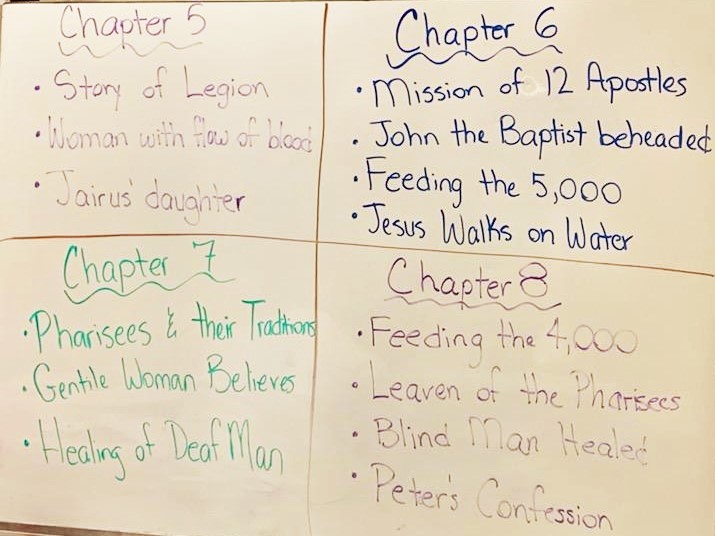 Chapter 5
• Story of Legion
• Woman with flow of blood
• Jairus' daughter
Chapter 6
• Mission of 12 Apostles
• John the Baptist beheaded
• Feeding the 5,000
• Jesus Walks on Water
Chapter 7
• Pharisees & their Traditions
• Gentile Woman Believes
• Healing of Deaf Man
Chapter 8
• Feeding the 4,000
• Leaven of the Pharisees
• Blind Man Healed
• Peter's Confession